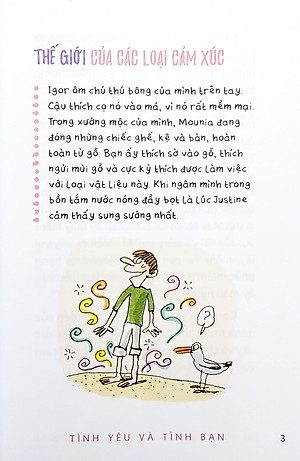 THẾ GIỚI CỦA CÁC LOẠI CẢM XÚC
Igor ôm chú thú bông của mình trên tay.
Cậu thích cọ nó vào má, vì nó rất mềm mại.
Trong xưởng mộc của mình, Mounia đang
đóng những chiếc ghế, kệ và bàn, hoàn
toàn từ gỗ. Bạn ấy thích sờ vào gỗ, thích
ngửi mùi gỗ và cực kỳ thích được làm việc
với loại vật liệu này. Khi ngâm mình trong
bồn tắm nước nóng đầy bọt là lúc Justine
cảm thấy sung sướng nhất.
?
TÌNH YÊU VÀ TÌNH BẠN 3